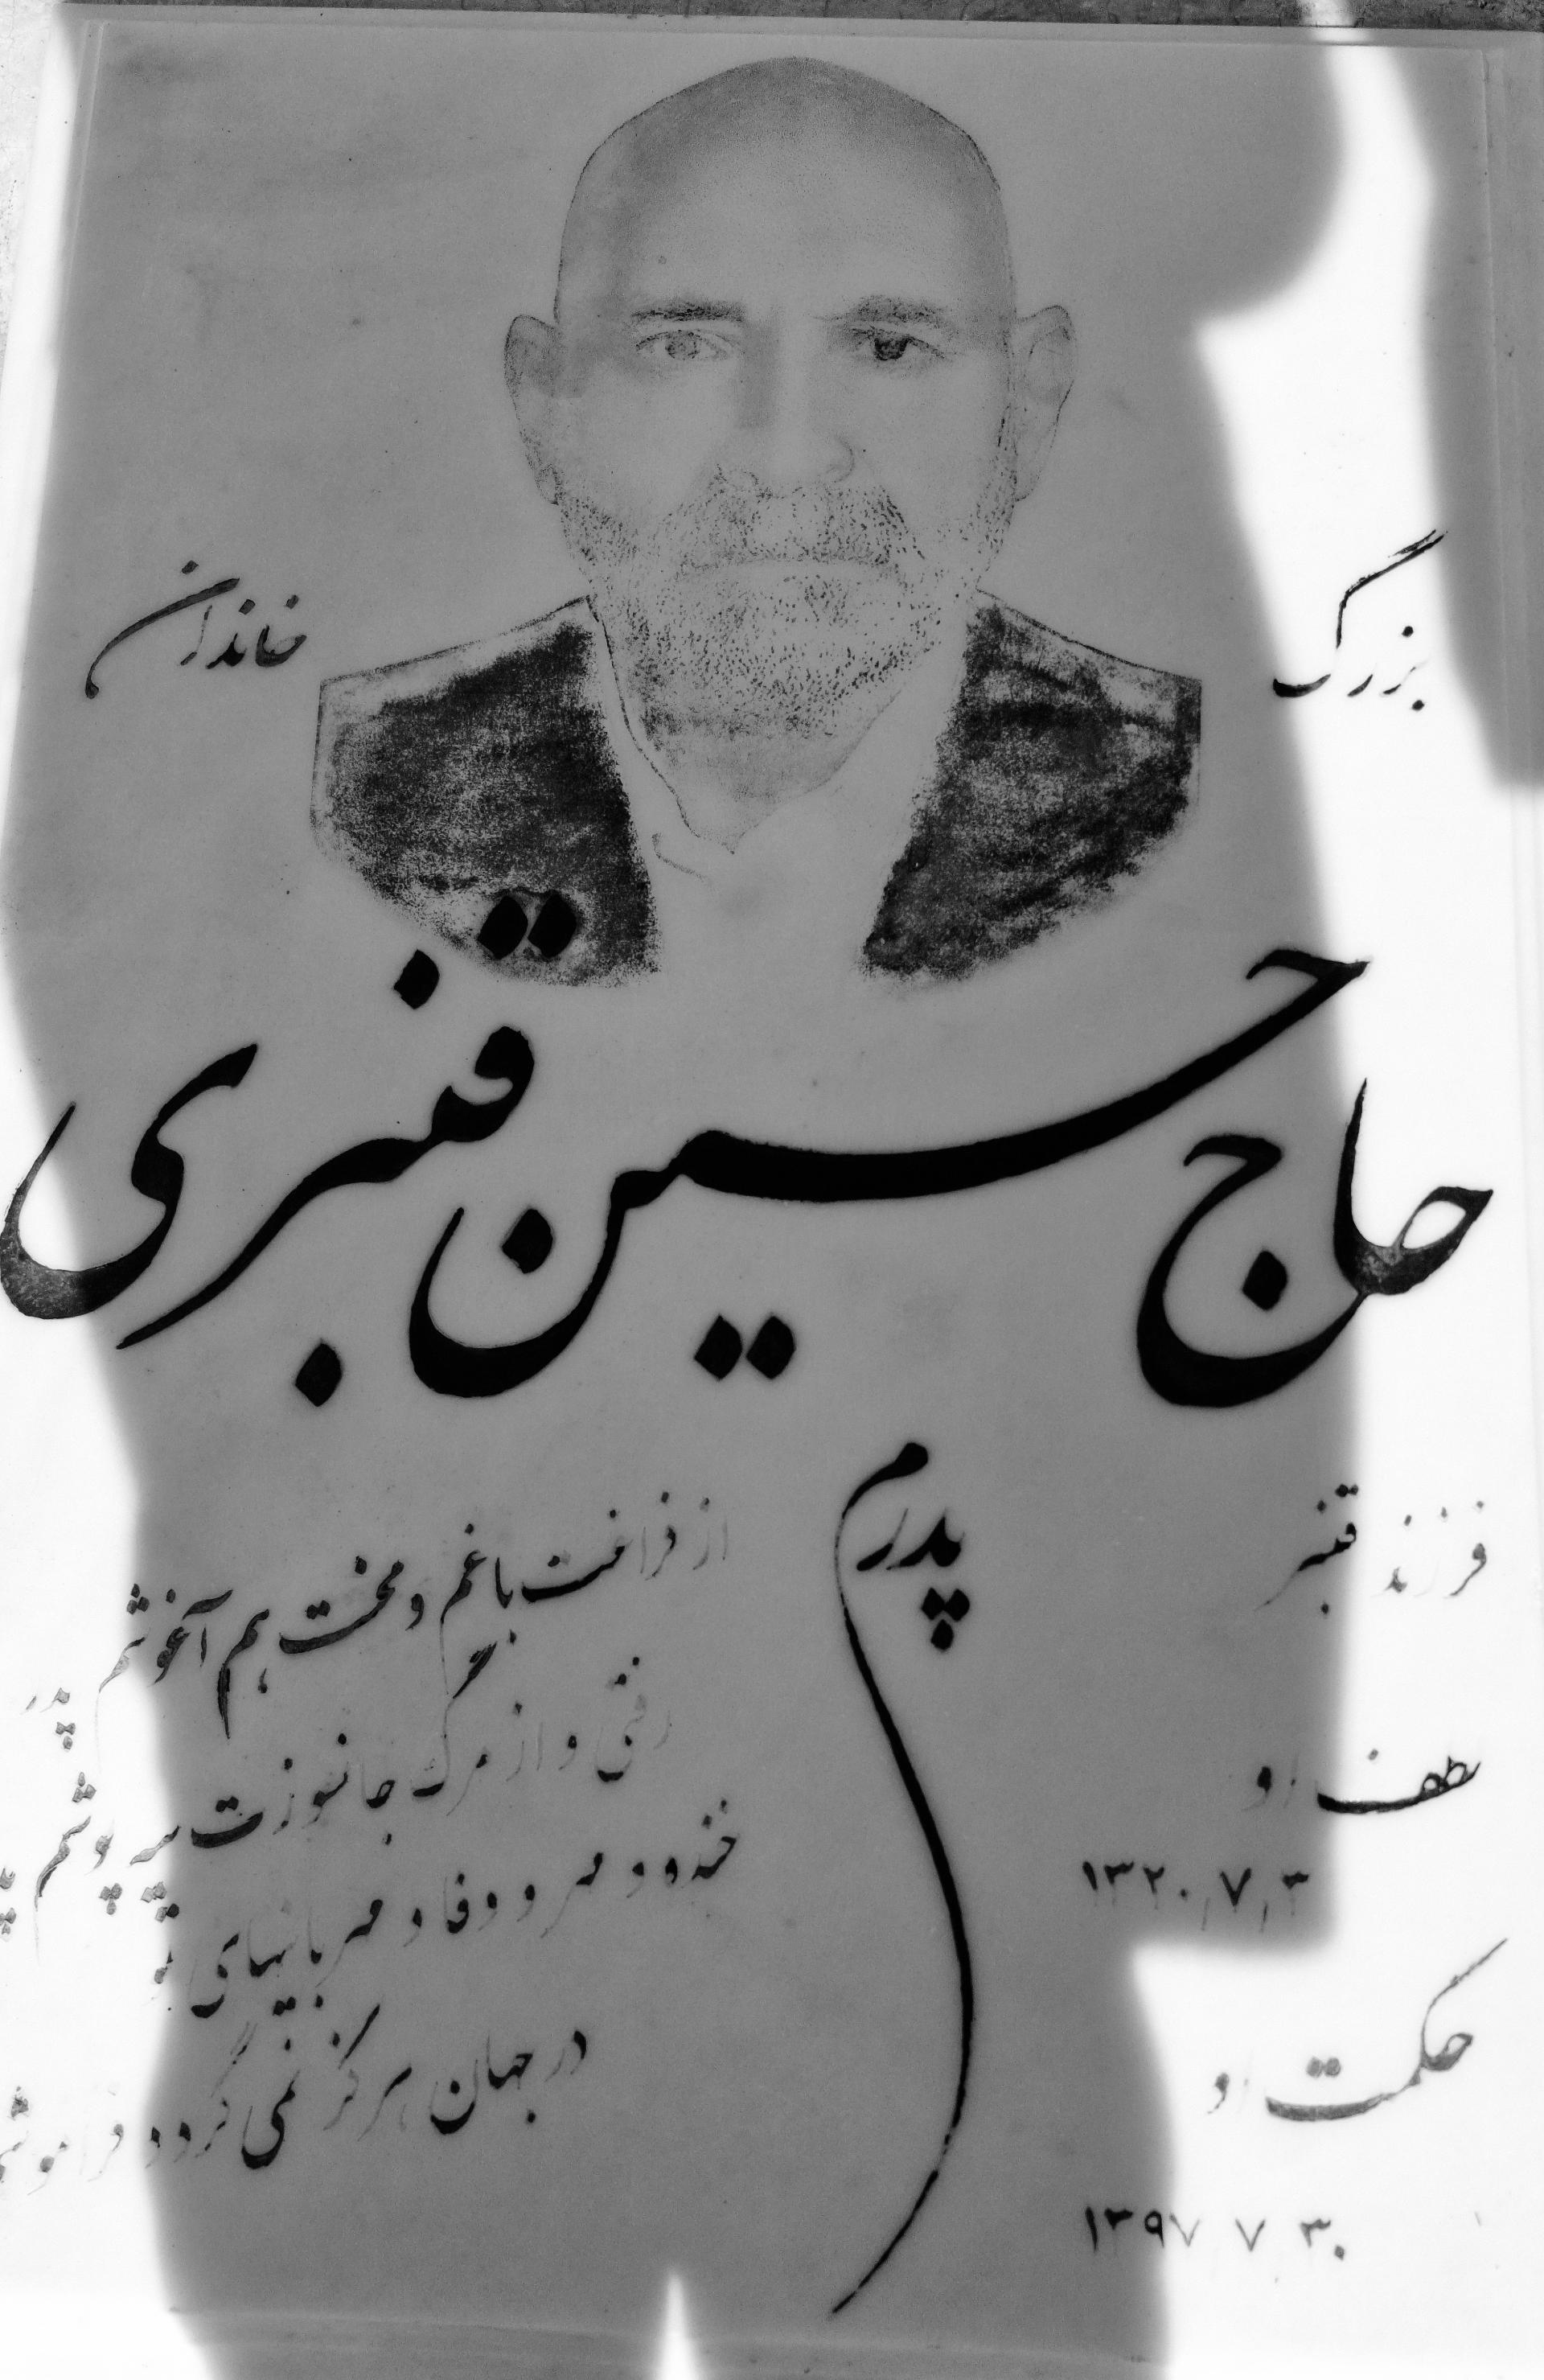 بزرگ خاندان
حاج حسین قنبری
فرزند قنبر
لطف او
۱۳۲۰/۷/۳
حکمت او
۱۳۹۷/۷/۳۰
پدرم
از فراغت با غم و محنت هم آغوشم پدر
رفتی و از مرگ جانسوزت سیه پوشم پدر
خنده و مهر و وفا و مهربانیهای تو
در جهان هرگز نمی گردد فراموشم